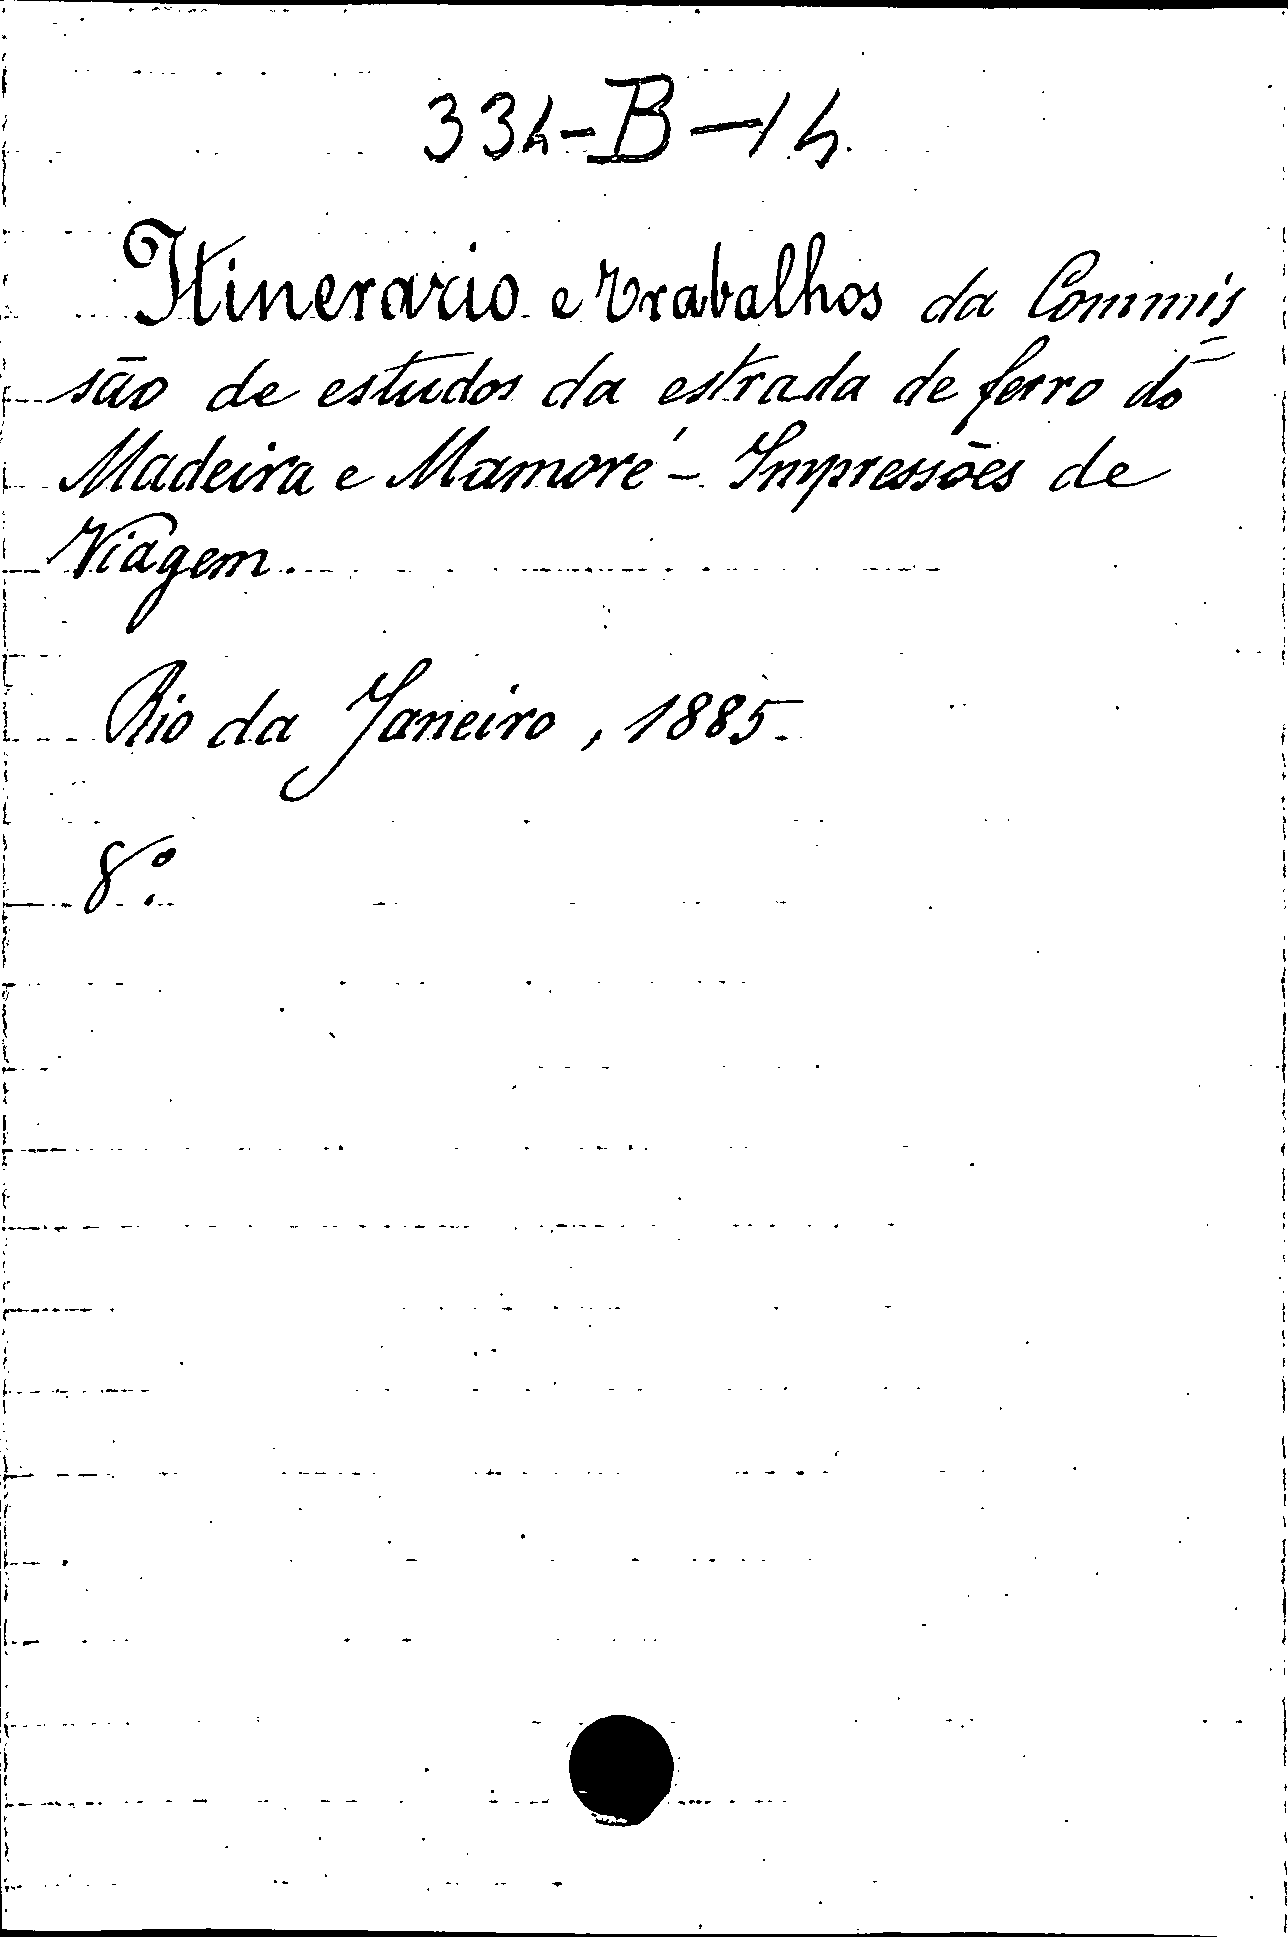 334-B-14.
Itinerario e trabalhos da Commis=
são de estudos da estrada de ferro do
Madeira e Mamoré - Impressões de
Viagem.
Rio da Janeiro, 1885.
8º.